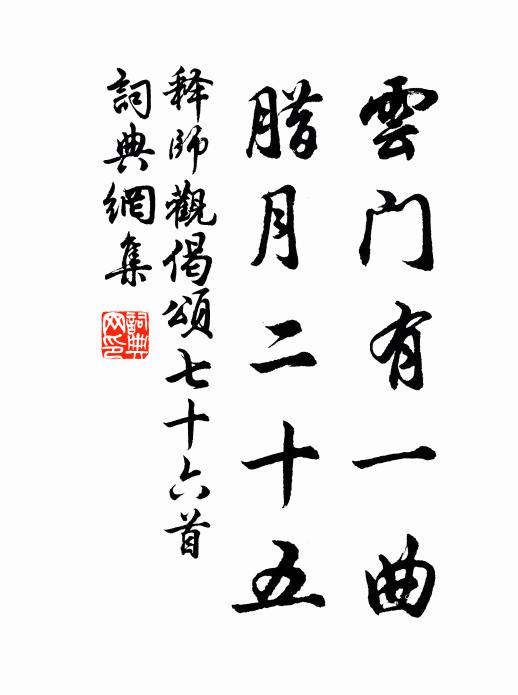 雲门有一曲
腊月二十五
释師觀偈頌七十六首
詞典網集
詞典
网印